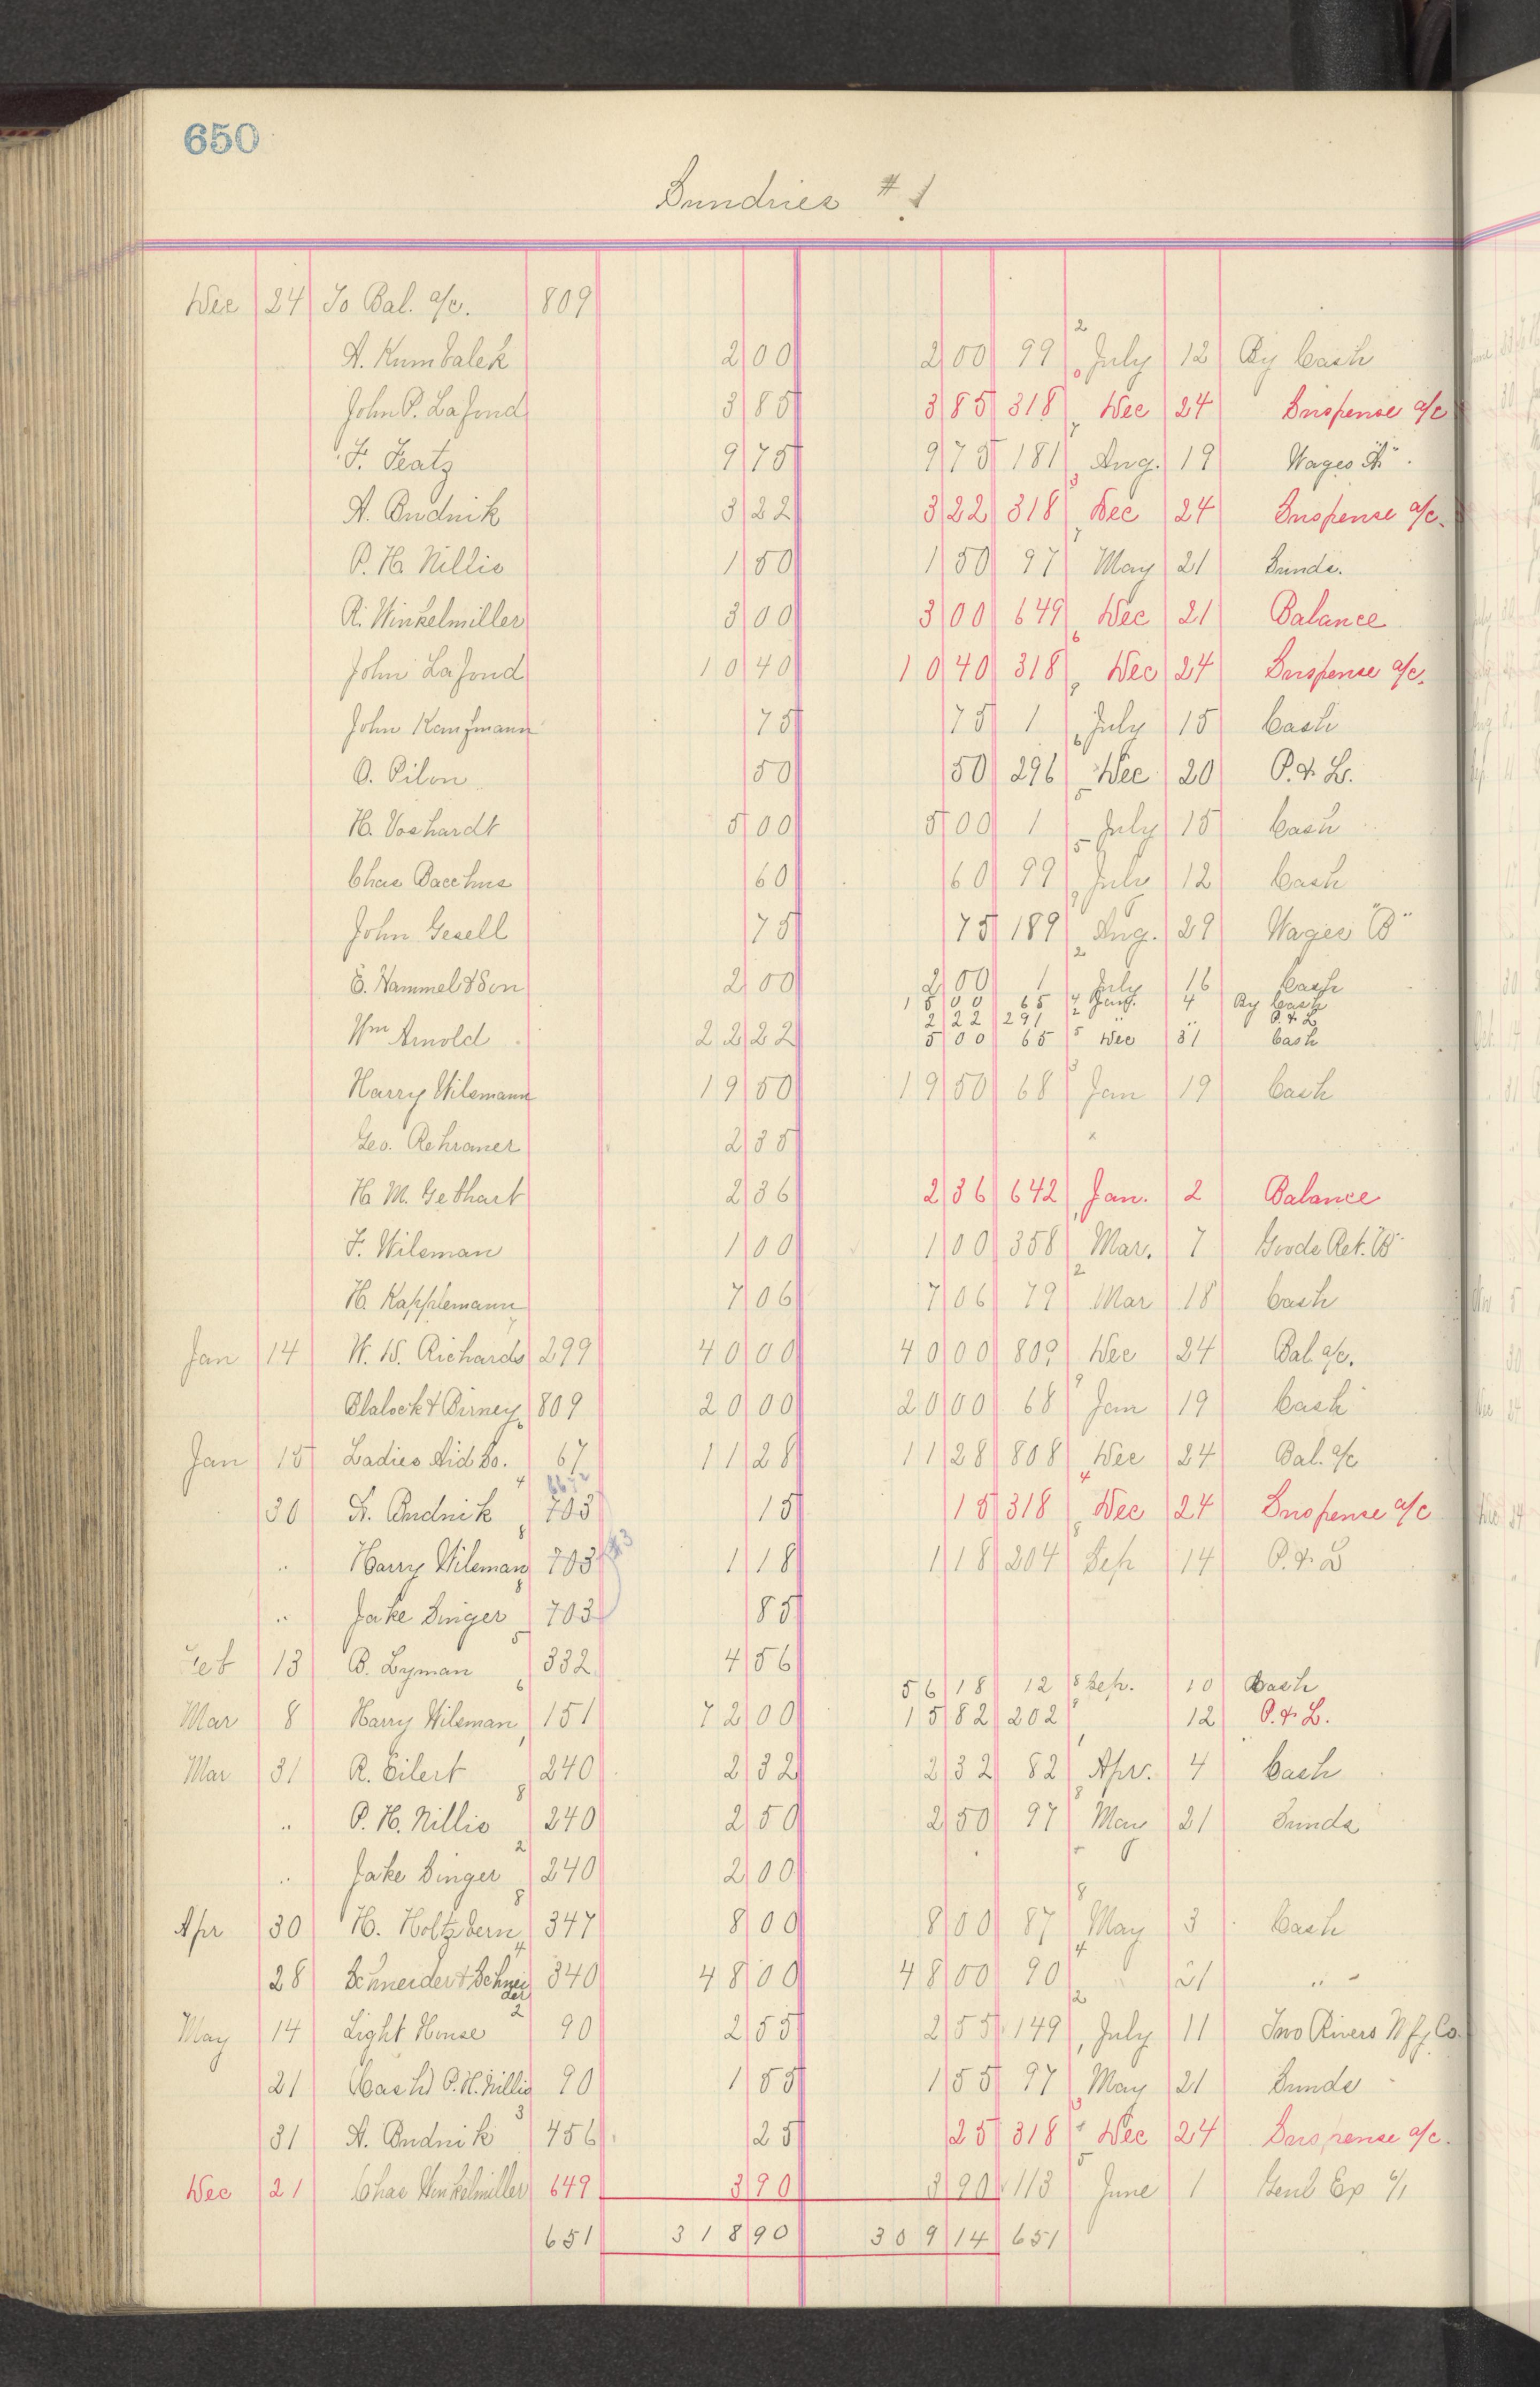 650
Sundries #1
Dec 24 To Bal. a/c. 809
A. Kumbalek 2 00 2 00 99 July 12 By Cash
John P. LaFond 3 85 3 85 318 Dec 24 Suspense a/c
F. Featz 9 75 9 75 181 Aug. 19 Wages "A"
A. Budnik 3 22 3 22 318 Dec 24 Suspense a/c.
P. H. Nillis 1 50 1 50 97 May 21 Sunds.
R. Winkelmiller 3 00 3 00 649 Dec 21 Balance
John LaFond 10 40 10 40 318 Dec 24 Suspense a/c.
John Kaufmann 75 75 1 July 15 Cash
O. Pilon 50 50 296 Dec 20 P. & L.
H. Voshardt 5 00 5 00 1 July 15 Cash
Chas Bacchus 60 60 99 July 12 Cash
John Gesell 75 75 189 Aug. 29 Wages "B"
E. Hammel & Son 2 00 2 00 1 July 16 Cash
15 00 65 4 By Cash
2 22 291 " P. & L
Wm Arnold 22 22 5 00 65 Dec 31 Cash
Harry Wilsmann 19 50 19 50 68 Jan 19 Cash
Geo. Rehraner 2 35
H. M. Gebhart 2 36 2 36 642 Jan. 2 Balance
F. Wilsman 1 00 1 00 358 Mar. 7 Goods Ret. "B"
H. Kapplemann 7 06 7 06 79 Mar 18 Cash
Jan 14 W. W. Richards 299 40 00 40 00 809 Dec 24 Bal a/c.
Blalock & Birney 809 20 00 20 00 68 Jan 19 Cash
Jan 15 Ladies Aid So. 67 11 28 11 28 808 Dec 24 Bal. a/c
30 A. Budnik 703 15 15 318 Dec 24 Suspense a/c
" Harry Wilsman 703 1 18 1 18 204 Sep 14 P. & L
" Jake Singer 703 85
Feb 13 B. Lyman 332 4 56
56 18 12 Sep. 10 Cash
Mar 8 Harry Wilsman 151 72 00 15 82 202 12 P. & L.
Mar 31 R. Eilert 240 2 32 2 32 82 Apr. 4 Cash
" P. H. Nillis 240 2 50 2 50 97 May 21 Sunds
" Jake Singer 240 2 00
Apr 30 H. Holtzbern 347 8 00 8 00 87 May 3 Cash
28 Schneider & Schneider 340 48 00 48 00 90 21 "
May 14 Light House 90 2 55 2 55 149 July 11 Two Rivers Mfg Co.
21 Cash P. H. Nillis 90 1 55 1 55 97 May 21 Sunds
31 A. Budnik 456 25 25 318 Dec 24 Suspense a/c.
Dec 21 Chas Winkelmiller 649 3 90 3 90 113 June 1 Genl Exp
651 318 90 309 14 651